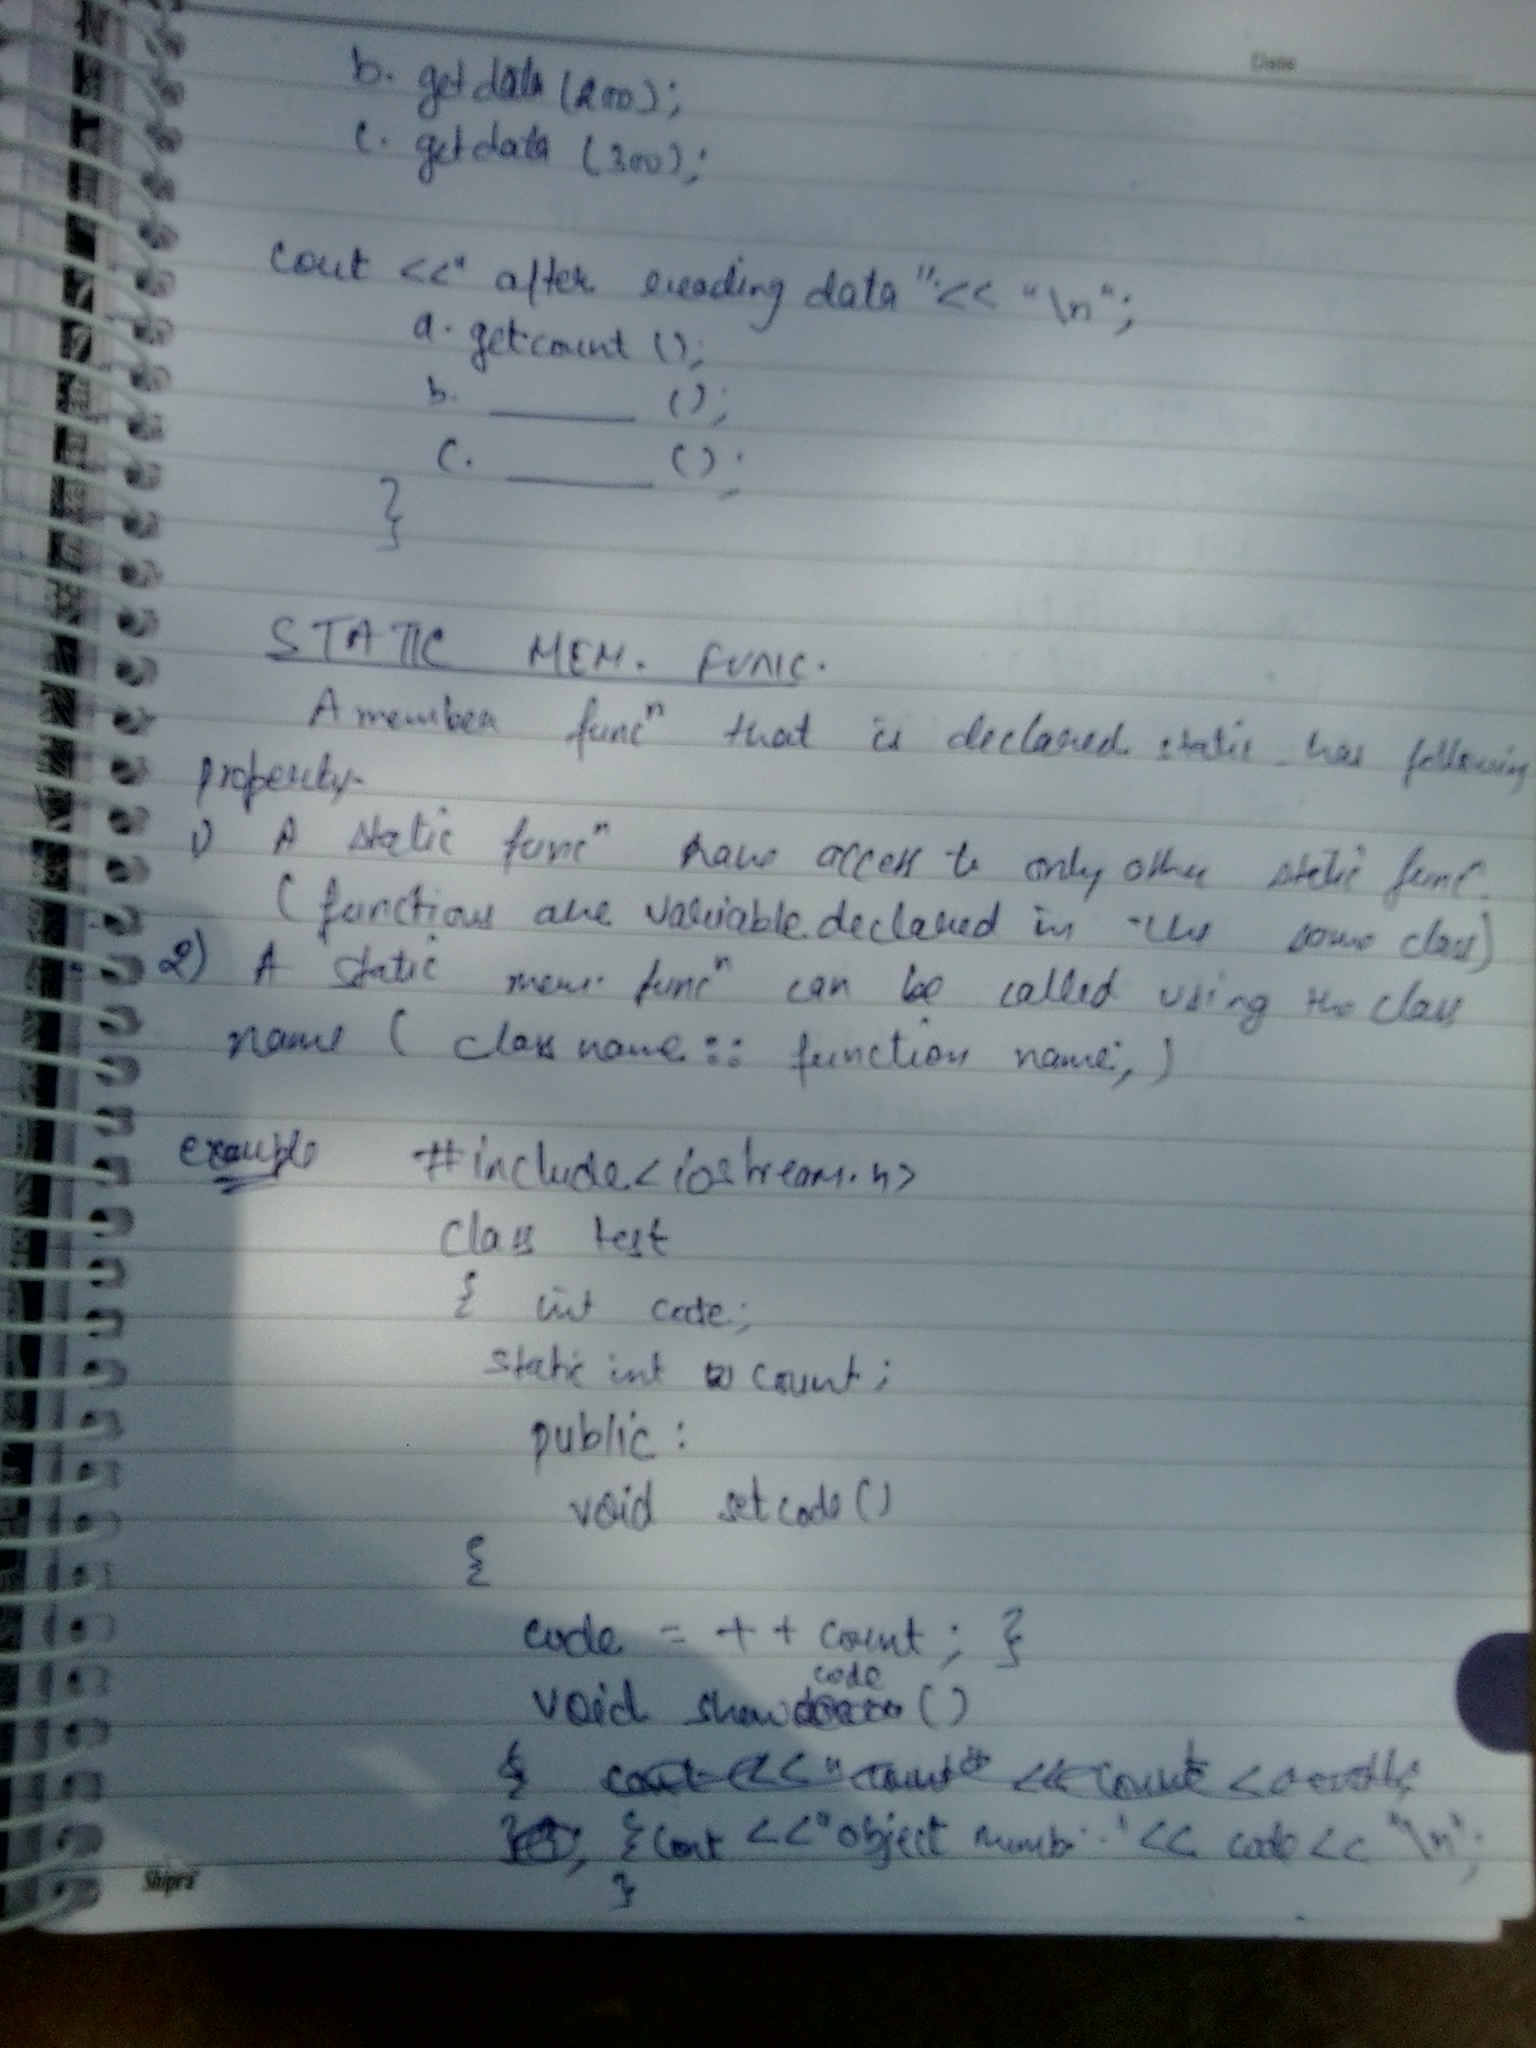 Date
b. getdata (200);
c. getdata (300);
cout <<" after reading data"<< "\n";
a. getcount ();
b. ______ ();
c. ______ ();
}
STATIC MEM. FUNC.
A member funcⁿ that is declared static has following
property.
1) A static funcⁿ have access to only other static func.
(functions are variable declared in the same class)
2) A static mem. funcⁿ can be called using the class
name ( class name :: function name; )
example #include<iostream.h>
class test
{ int code;
static int count;
public :
void setcode ()
{
code = ++ count; }
void showcode ()
{ cout << "count" << count <<endl;
{cout <<"object numb.." << code << "\n";
}
Shipra